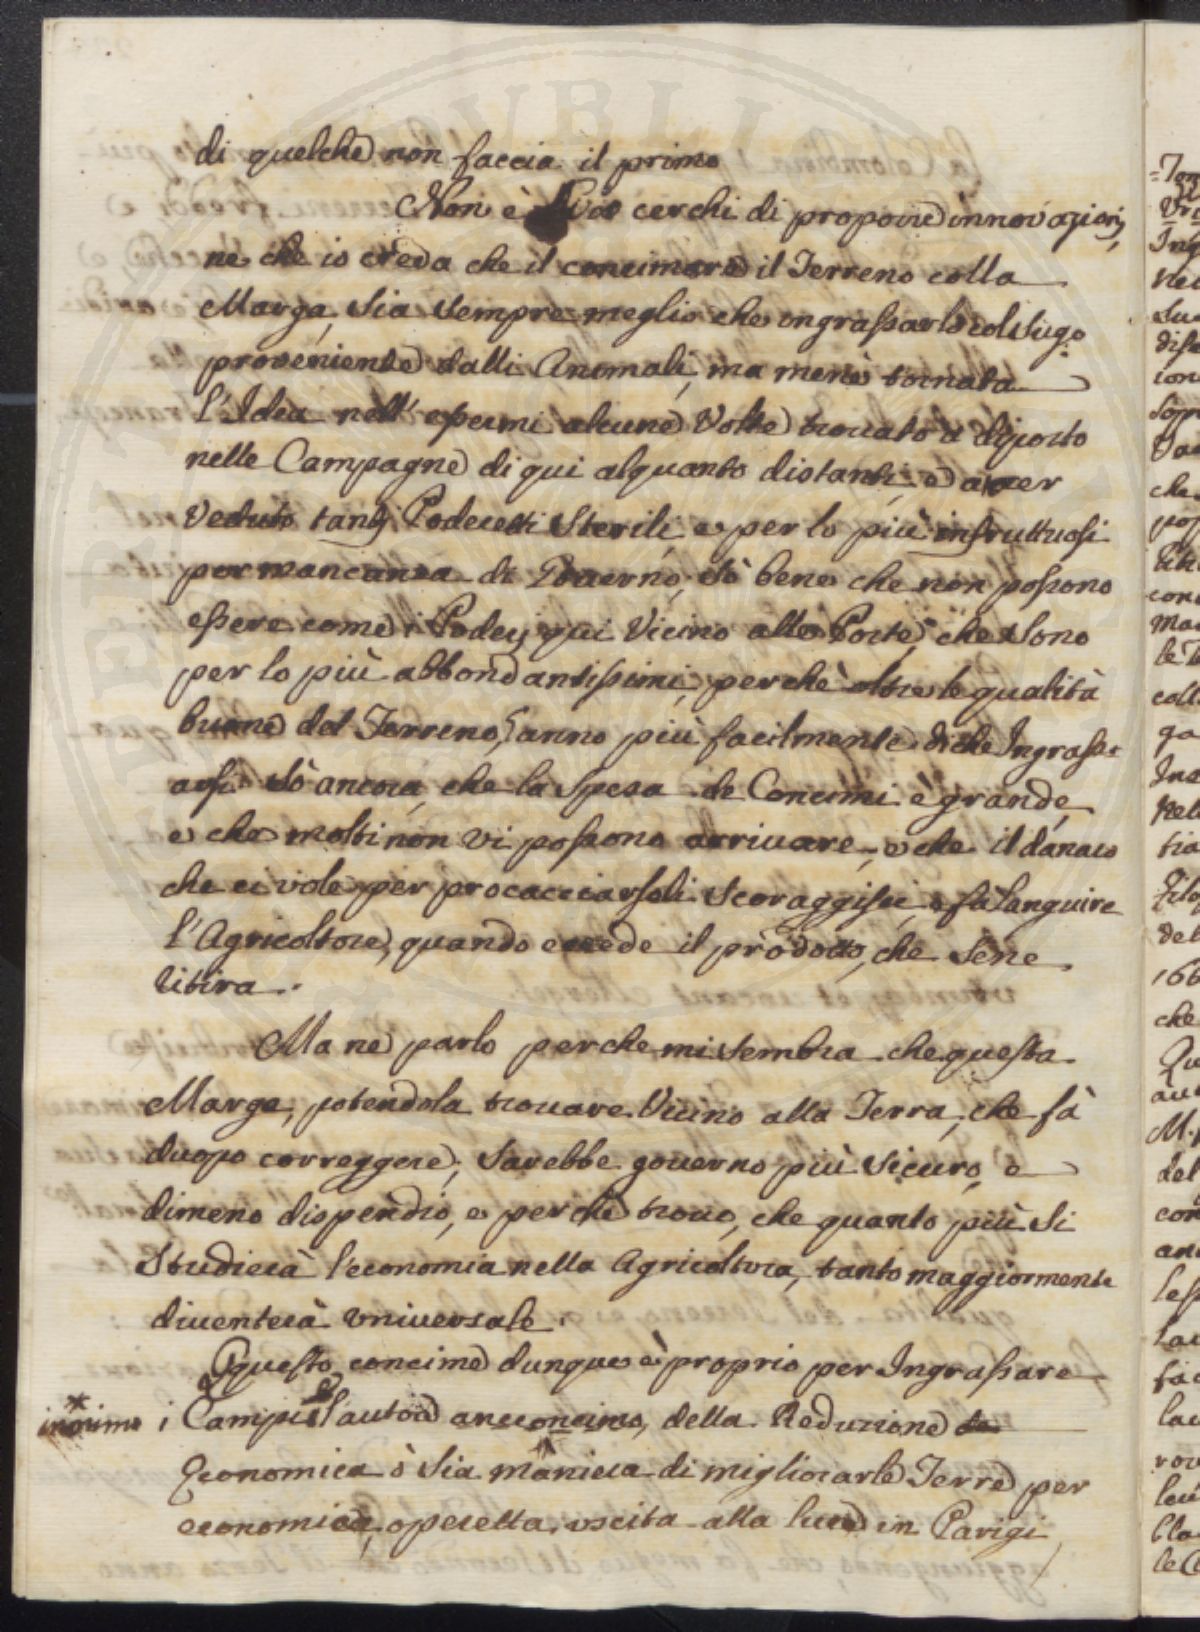 di quelche non faccia il primo
Non è cerchi di proporre innovazioni,
ne che io creda che il concimare il Terreno colla
Marga, sia sempre meglio che ingrassarlo col sugo
proveniente dalli Animali, ma menè tornata
l'Idea nell' essermi alcune Volte trovato a diporto
nelle Campagne di qui alquanto distanti, e aver
Veduto tanti Poderetti Sterili e per lo più infruttuosi
per mancanza di Governo, sò bene che non possono
essere come i Poderj qui Vicino alle Porte, che sono
per lo più abbondantissimi, perchè oltre le qualità
buone del Terreno, anno più facilmente di che Ingrass-
arsi. Sò ancora, che la spesa de Concimi è grande,
e che molti non vi possono arrivare, e che il danaro
che ci vole per procacciarseli scoraggisce, e fà Languire
l'Agricoltore, quando eccede il prodotto, che sene
ritira.
Ma ne parlo perche mi sembra che questa
Marga, potendola trovare Vicino alla Terra, che fà
duopo correggere, sarebbe governo più sicuro, e
dimeno dispendio, e perchè trovo, che quanto più si
studierà l'economia nella Agricoltura, tanto maggiormente
diventerà universale.
Questo concime dunque è proprio per Ingrassare
* i Campi l'autore della Reduzione
Economica ò sia maniera di migliorar le Terre per
economia, operetta uscita alla luce in Parigi